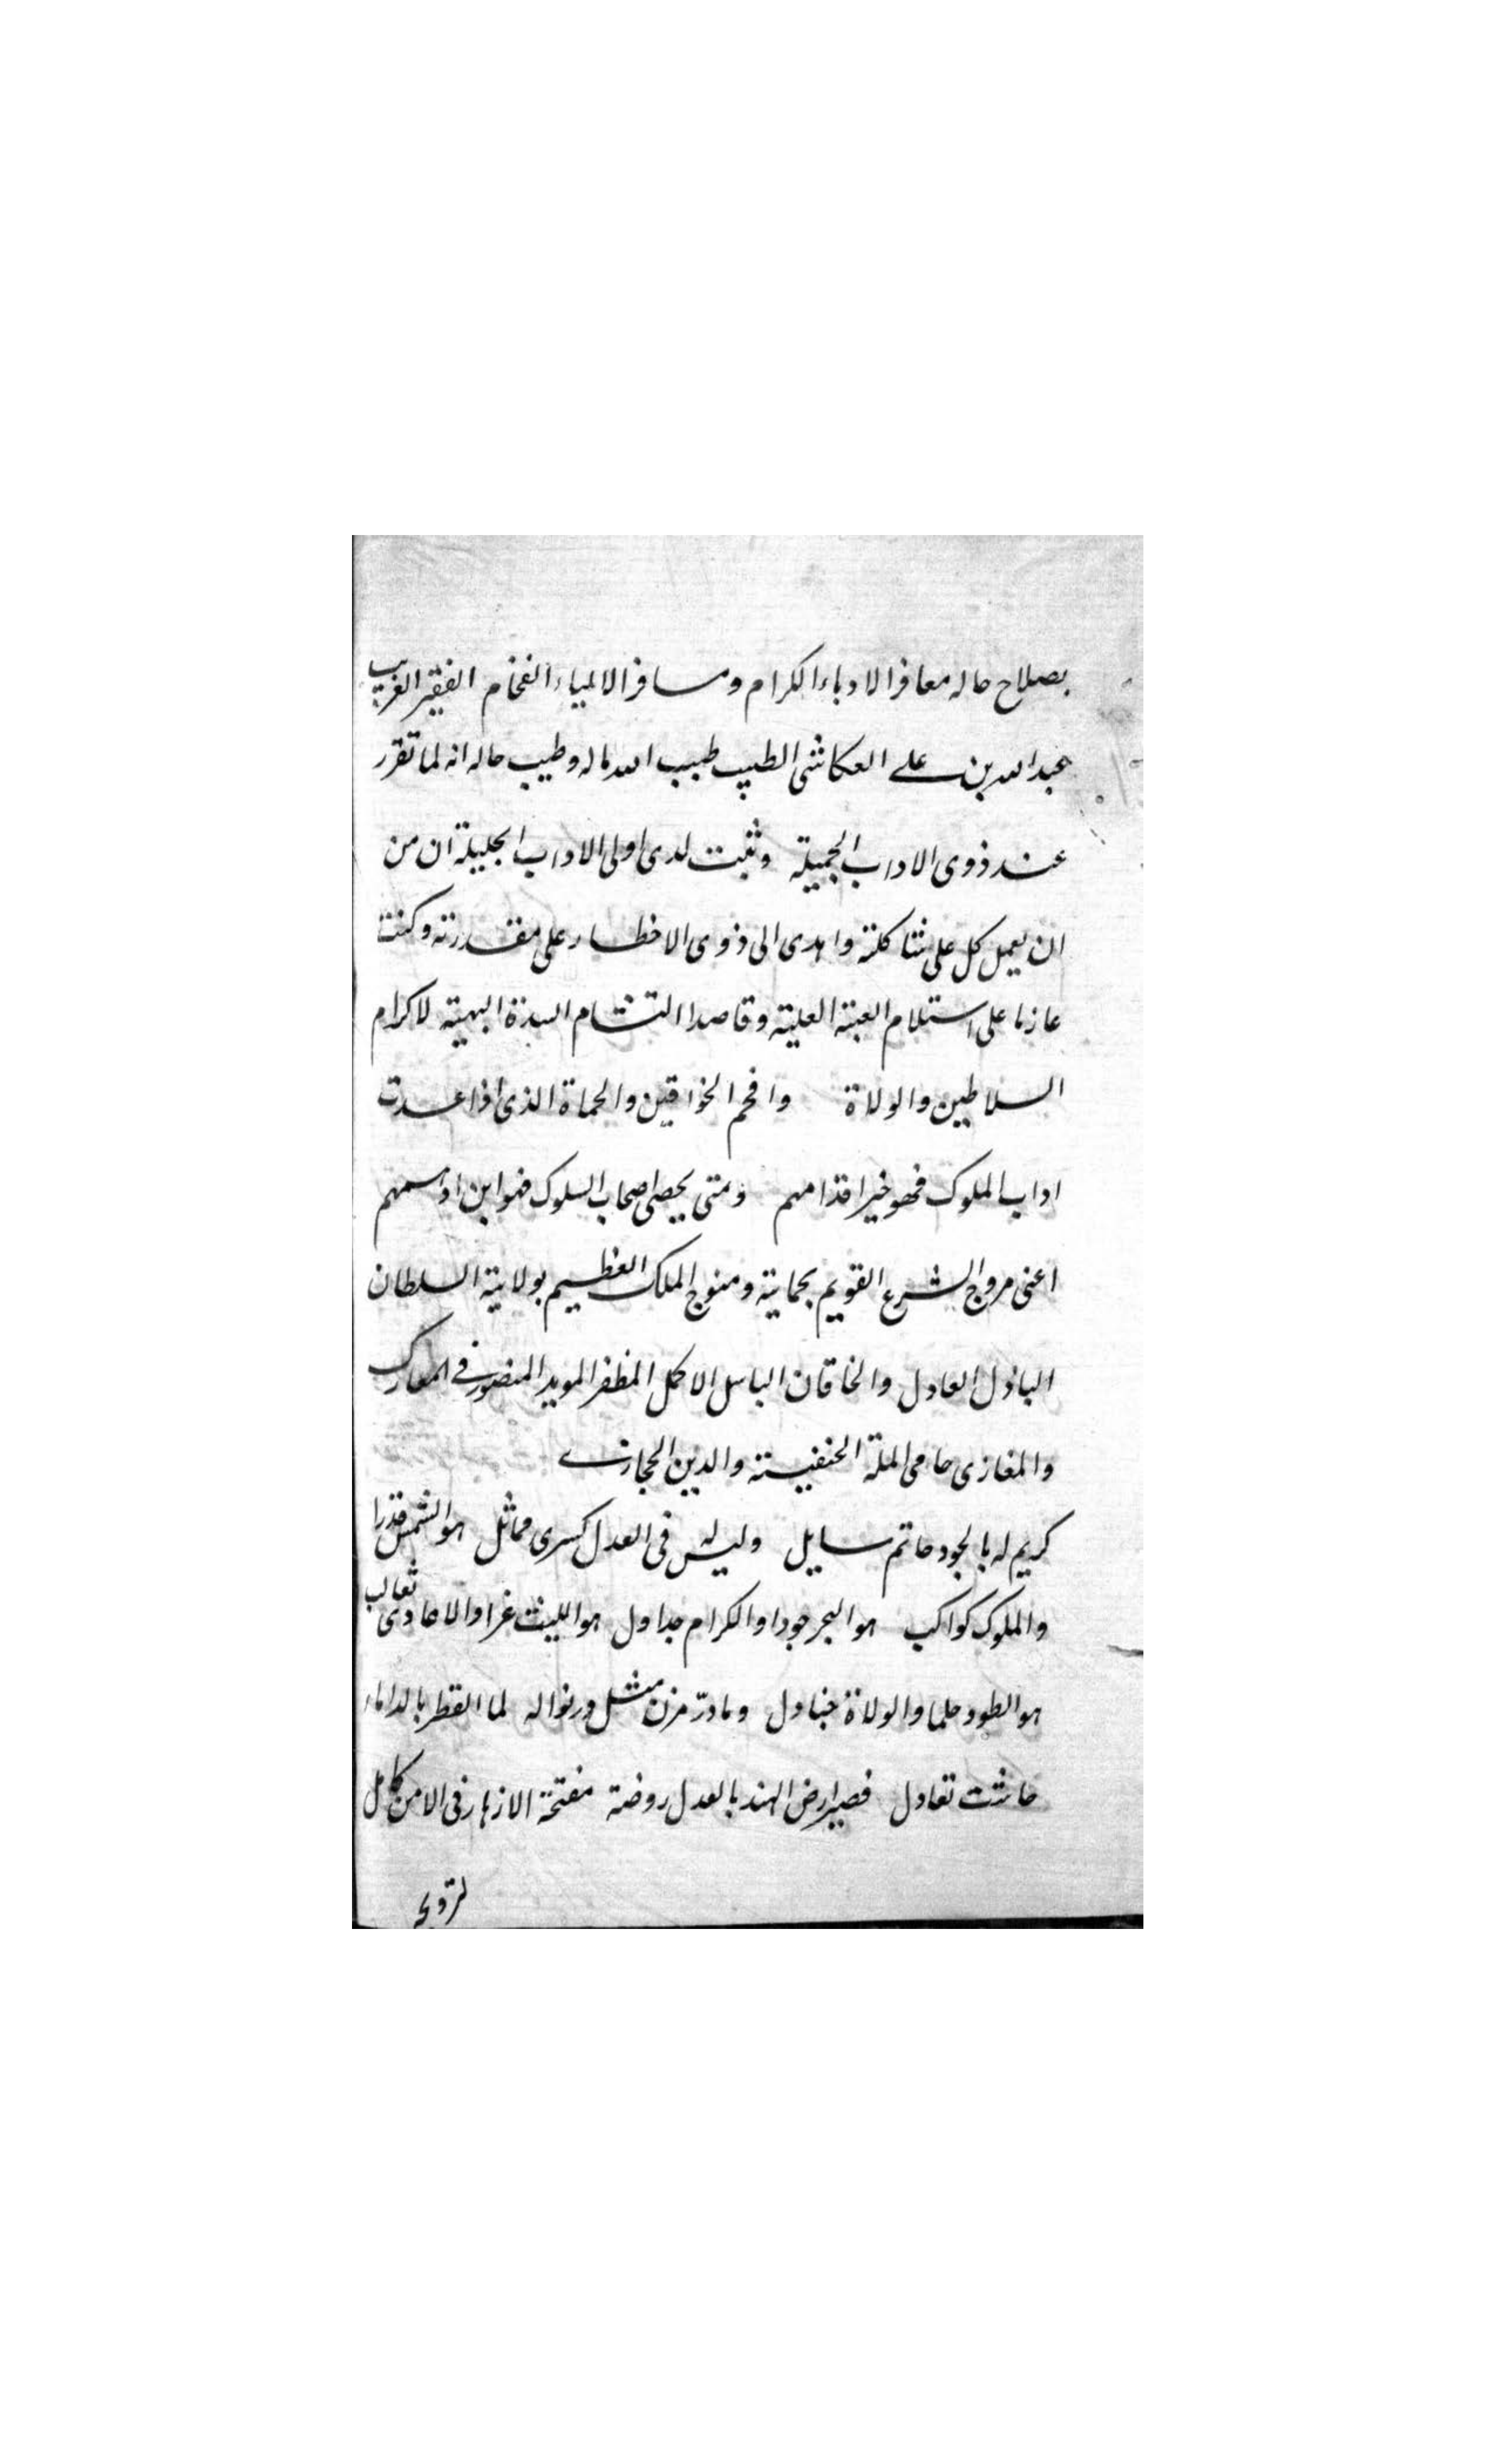 بصلاح حاله معاقر الادباء الكرام ومسافر الالباء الفخام الفقير الغريب
عبد الله بن على العكاشى الطبيب طبب الله باله وطيب حاله انه لما تقرر
عند ذوى الاداب الجميلة وثبت لدى اولى الاداب الجليلة ان من
ان يعمل كل على شاكلته واهدى الى ذوى الاخطار على مقدرته وكنت
عازما على استلام العتبة العلية وقاصدا التشام السدة البهية لاكرام
السلاطين والولاة وافخم الخواقين والحماة الذى اذا عدت
اداب الملوك فهو خير اقدامهم ومتى يحصى اصحاب السلوك فهو ابن ادهمهم
اعنى مروج الشرع القويم بحمايته ومنوج الملك العظيم بولايته السلطان
الباذل العادل والخاقان الباسل الاكمل المظفر المويد المنصور فى المعارك
والمغازى حامى الملة الحنفيته والدين الحجازى
كريم له بالجود حاتم سايل وليس له فى العدل كسرى مماثل هو الشمس قدرا
والملوك كواكب هو البحر جودا والكرام جداول هو الليث غزا والاعادى ثعالب
هو الطود حلما والولاة جنادل وما درّ مزن مثل در نواله لما القطر بالداماء
حاشت تعادل فصير ارض الهند بالعدل روضة مفتحة الازهار فى الامن كامل